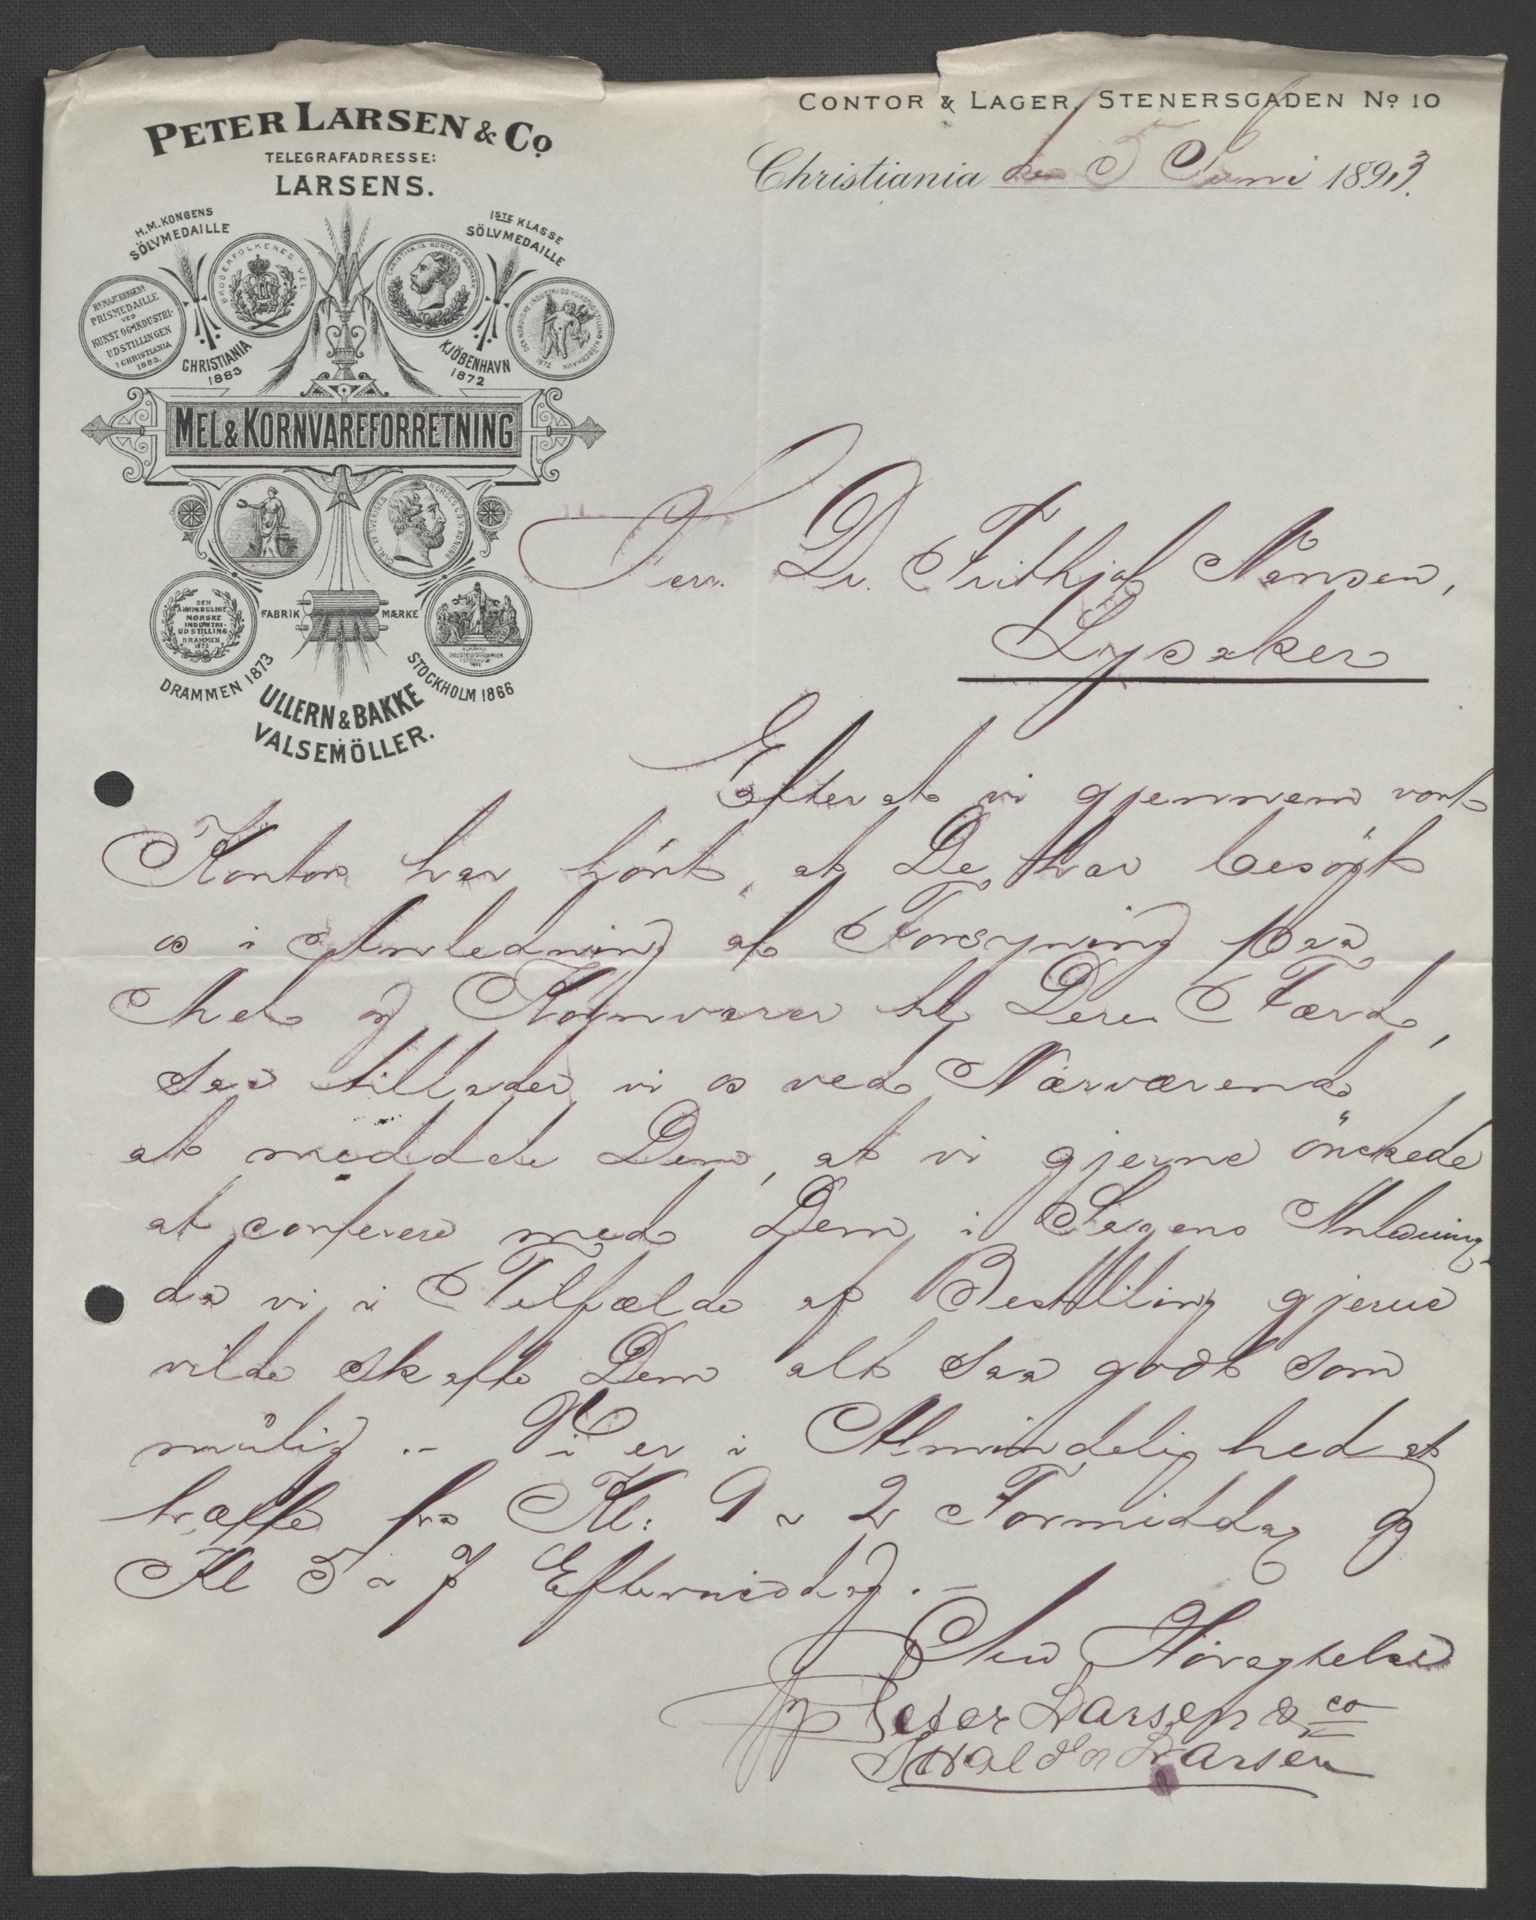 PETER LARSEN & Co
TELEGRAFADRESSE:
LARSENS.
CONTOR & LAGER, STENERSGADEN No 10
Christiania den 5 Juni 1893.
H.M. KONGENS
SÖLVMEDAILLE
1STE KLASSE
SÖLVMEDAILLE
BRODERFOLKENES VEL
PRISMEDAILLE
VED
KUNST OG INDUSTRI-
UDSTILLINGEN
I CHRISTIANIA
1883.
CHRISTIANIA
1883
KJÖBENHAVN
1872
DEN NORDISKE INDUSTRI OG KUNSTUDSTILLING KJÖBENHAVN
1872
MEL & KORNVAREFORRETNING
DEN
ALMINDELIGE
NORSKE
INDUSTRI-
UDSTILLING
DRAMMEN
1873
FABRIK MÆRKE
DRAMMEN 1873
STOCKHOLM 1866
ULLERN & BAKKE
VALSEMÖLLER.
Herr. Dr. Frithjof Nansen,
Lysaker
Efter at vi gjennem vort
Kontor har hört, at De har besögt
os i Anledning af Forsyning paa
Mel og Kornvarer til Deres Færd,
saa tillader vi os ved Nærværende
at meddele Dem, at vi gjerne önskede
at conferere med Dem i Sagens Anledning
da vi i Tilfælde af Bestilling gjerne
vilde skaffe Dem alt saa godt som
mulig. – Vi er i Almindelighed at
træffe fra Kl: 9 a 2 Formiddag og
Kl 5 a 7 Eftermiddag. –
Med Höiagtelse
pp Peter Larsen & Co
Larsen